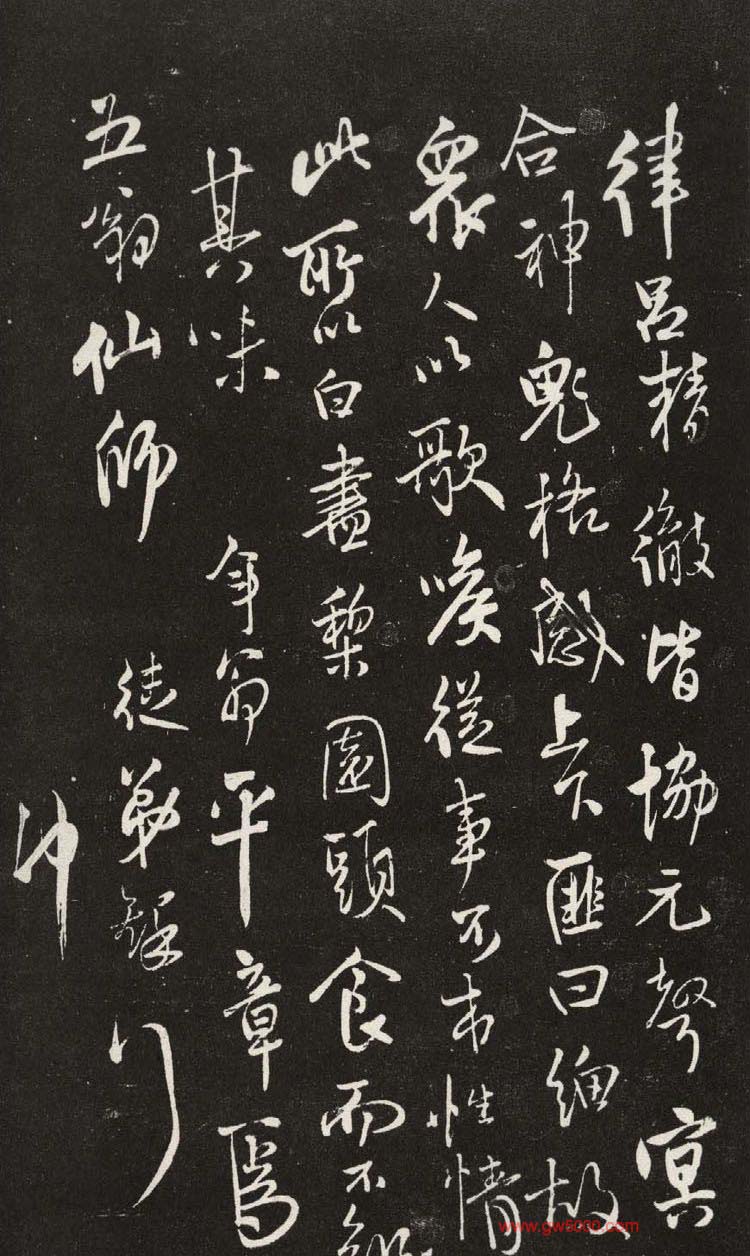 律呂精徹皆協元聲冥
合神鬼格感上下匪曰細故
衆人以歌喉從事不本性情
此所以白盡棃園頭食而不
其味 年翁平章焉
五翁仙師 徒弟
www.gw6000.com